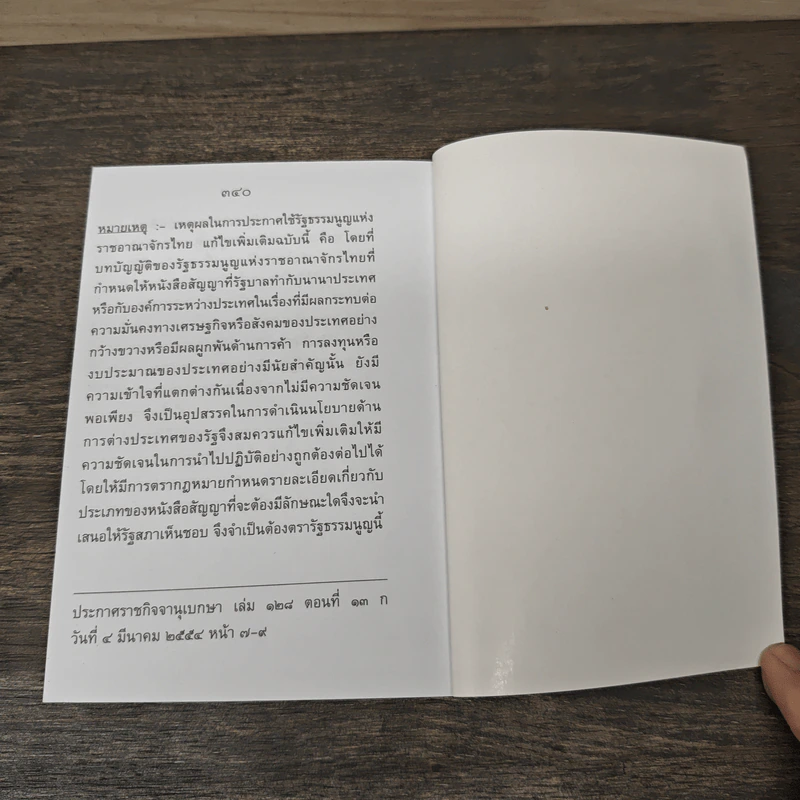 ๓๔๐
หมายเหตุ :- เหตุผลในการประกาศใช้รัฐธรรมนูญแห่ง
ราชอาณาจักรไทย แก้ไขเพิ่มเติมฉบับนี้ คือ โดยที่
บทบัญญัติของรัฐธรรมนูญแห่งราชอาณาจักรไทยที่
กำหนดให้หนังสือสัญญาที่รัฐบาลทำกับนานาประเทศ
หรือกับองค์การระหว่างประเทศในเรื่องที่มีผลกระทบต่อ
ความมั่นคงทางเศรษฐกิจหรือสังคมของประเทศอย่าง
กว้างขวางหรือมีผลผูกพันด้านการค้า การลงทุนหรือ
งบประมาณของประเทศอย่างมีนัยสำคัญนั้น ยังมี
ความเข้าใจที่แตกต่างกันเนื่องจากไม่มีความชัดเจน
พอเพียง จึงเป็นอุปสรรคในการดำเนินนโยบายด้าน
การต่างประเทศของรัฐจึงสมควรแก้ไขเพิ่มเติมให้มี
ความชัดเจนในการนำไปปฏิบัติอย่างถูกต้องต่อไปได้
โดยให้มีการตรากฎหมายกำหนดรายละเอียดเกี่ยวกับ
ประเภทของหนังสือสัญญาที่จะต้องมีลักษณะใดจึงจะนำ
เสนอให้รัฐสภาเห็นชอบ จึงจำเป็นต้องตรารัฐธรรมนูญนี้
ประกาศราชกิจจานุเบกษา เล่ม ๑๒๘ ตอนที่ ๑๓ ก
วันที่ ๔ มีนาคม ๒๕๕๔ หน้า ๗-๙